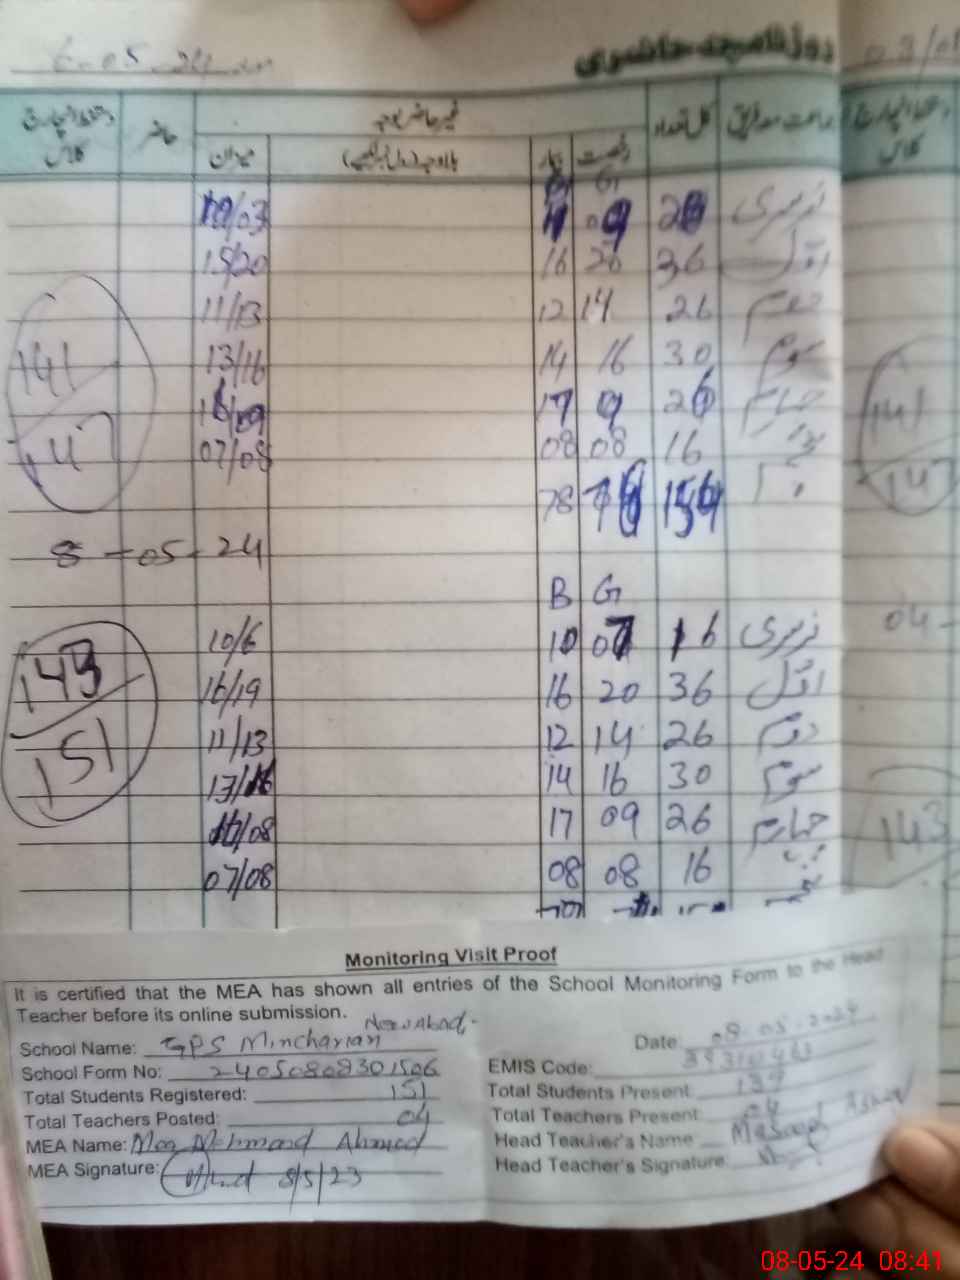 6-05-24
روزنامچہ حاضری
دستخط انچارج کلاس
حاضر
غیر حاضر بوجہ
میزان
بلاوجہ (رول نمبر لکھیے)
بیمار
رخصت
کل تعداد
جماعت معہ فریق
دستخط انچارج کلاس
G
/03 09 نرسری
15/20 16 20 36 اول
11/13 12 14 26 دوم
13/16 14 16 30 سوم
/09 17 9 26 چہارم
07/08 08 08 16
78
141
147
141
147
8-05-24
B G
10/6 10 07 16 نرسری
16/19 16 20 36 اول
11/13 12 14 26 دوم
13/16 14 16 30 سوم
/08 17 09 26 چہارم
07/08 08 08 16
143
151
04-
143
Monitoring Visit Proof
It is certified that the MEA has shown all entries of the School Monitoring Form to the Head
Teacher before its online submission.
School Name: GPS Mincharian Newabad. Date: 08-05-2024
School Form No: 24050808301506 EMIS Code:
Total Students Registered: 151 Total Students Present: 139
Total Teachers Posted: 04 Total Teachers Present: 04
MEA Name: Ahmed Head Teacher's Name: Masood
MEA Signature: 8/5/23 Head Teacher's Signature:
08-05-24 08:41